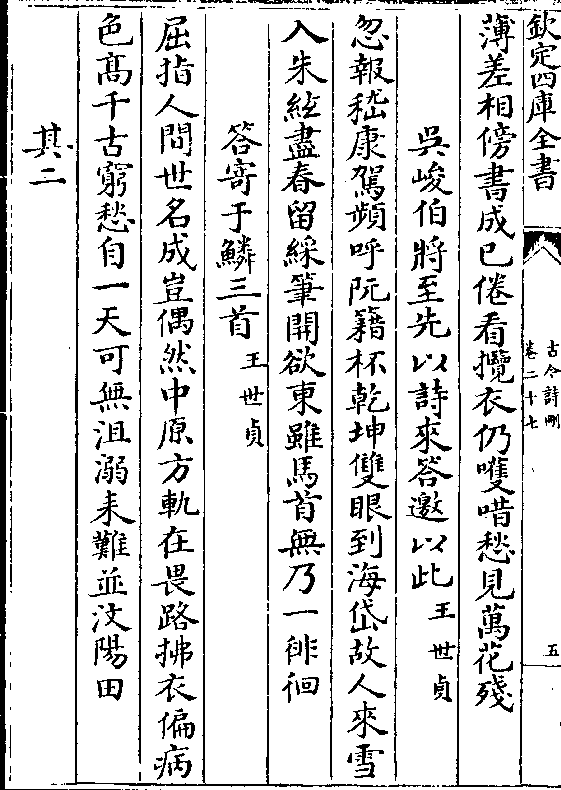 欽定四庫全書
古今詩刪
卷二十七
五
薄差相傍書成已倦看攬衣仍嘆惜愁見萬花殘
吳峻伯將至先以詩來答邀以此 王世貞
忽報嵇康駕頻呼阮籍杯乾坤雙眼到海岱故人來雪
入朱絃盡春留綵筆開欲東雖馬首無乃一徘徊
答寄于鱗三首 王世貞
屈指人間世名成豈偶然中原方軌在畏路拂衣偏病
色髙千古窮愁自一天可無沮溺耒難並汶陽田
其二